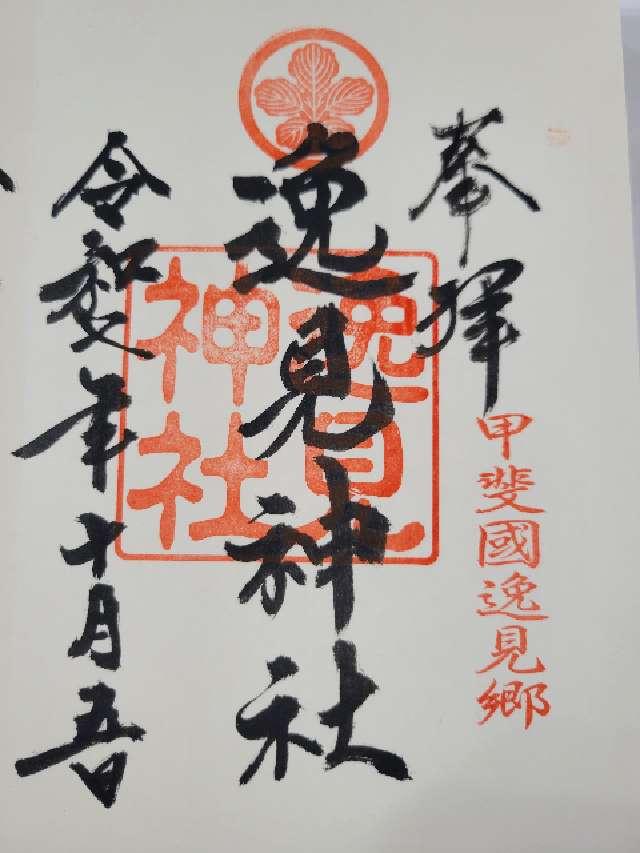 奉拝
甲斐國逸見郷
逸見神社
逸見
神社
令和年十月五日